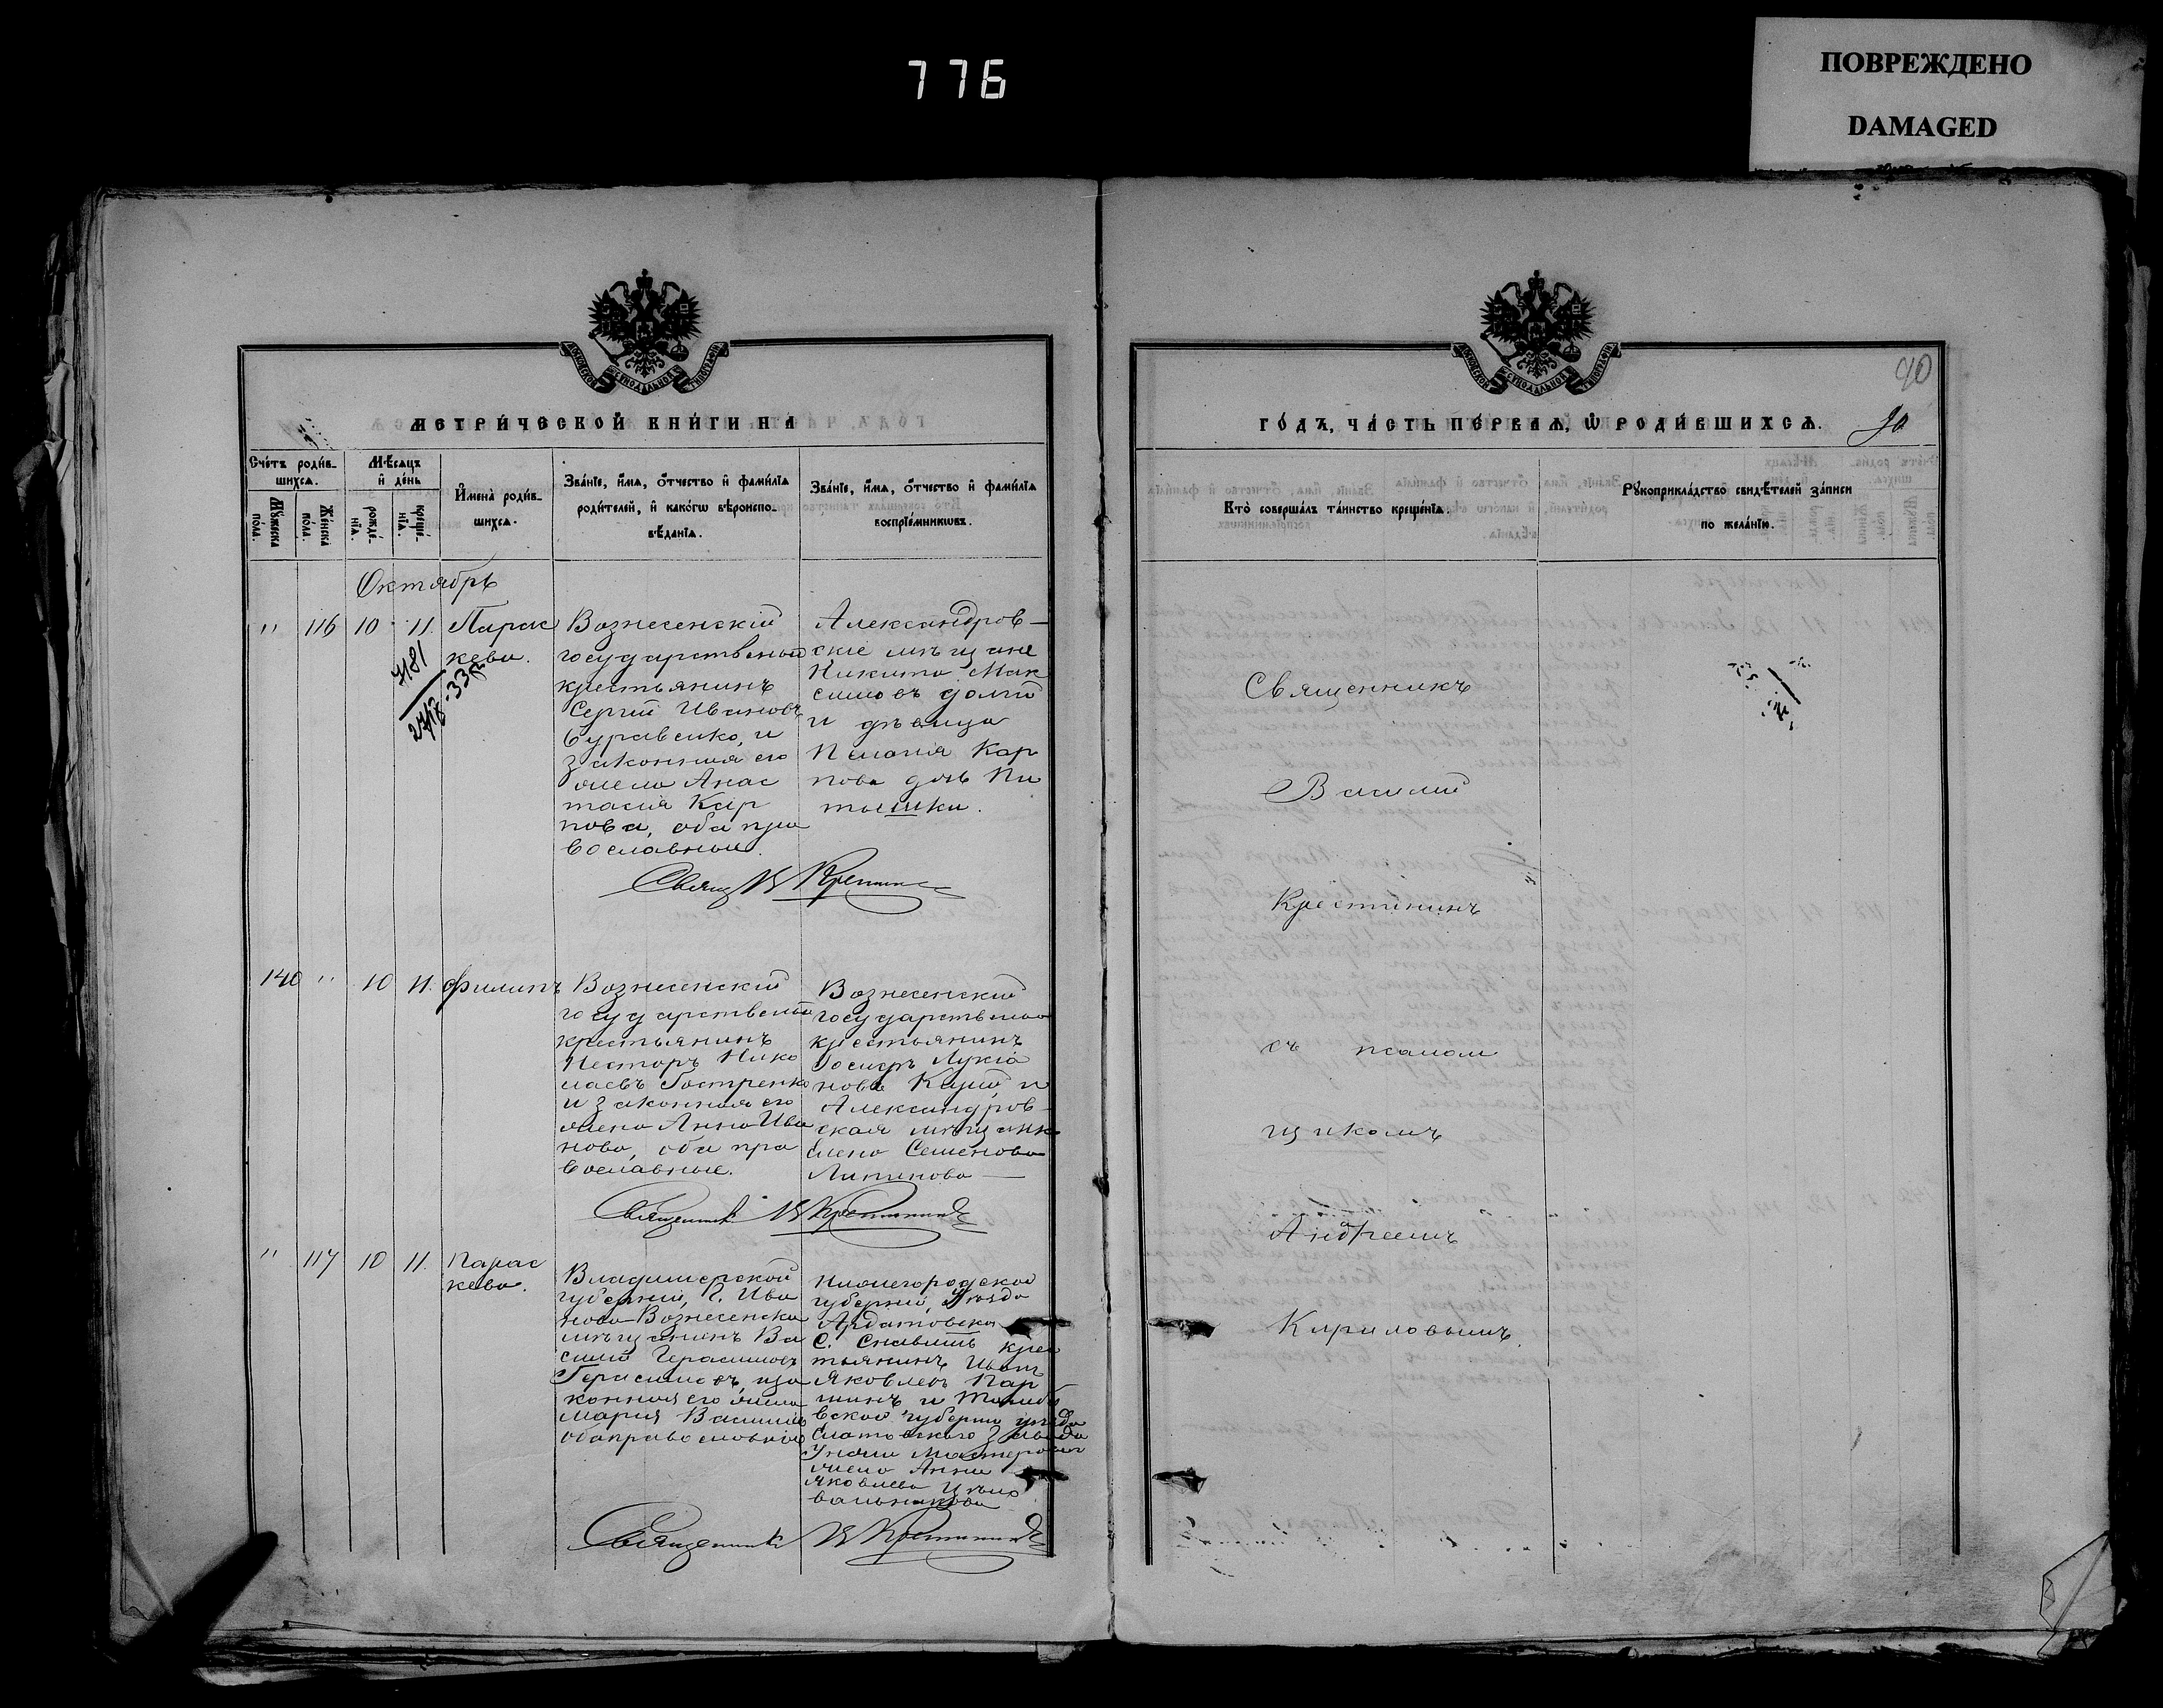 776
ПОВРЕЖДЕНО
DAMAGED
МОСКОВСКОЙ СѴНОДАЛЬНОЙ ТИПОГРАФІИ
МЕТРИ́ЧЕСКОЙ КНИ́ГИ НА
Сче́тъ роди́в-
шихсѧ.
Мѣ́сѧцъ
и҆ де́нь
Му́жеска
по́ла.
Же́нска
по́ла.
рожде́-
нїѧ.
креще́-
нїѧ.
И҆мена̀ роди́в-
шихсѧ.
Зва́нїе, и҆́мѧ, ѻ҆́тчество и҆ фами́лїѧ
роди́телей, и҆ како́гѡ вѣроиспо-
вѣ́данїѧ.
Зва́нїе, и҆́мѧ, ѻ҆́тчество и҆ фами́лїѧ
воспрїе́мникѡвъ.
Октябрь
" 116 10 11 Парас
кева.
7181
Вознесенскій
государственный
крестьянинъ
Сергій Ивановъ
Буравенко, и
законная его
жена Анас
тасія Кар
пова, оба пра
вославные.
Александров-
скіе мѣщане
Никита Мак
симовъ Долгій
и дѣвица
Пелагія Кар
пова дочь
Свящ В Крестинин
140 " 10 11. Филипъ
Вознесенскій
государственный
крестьянинъ
Несторъ Нико
лаевъ Гостренко
и законная его
жена Анна Ива
нова, оба пра
вославные.
Вознесенскій
государственный
крестьянинъ
Лукіа
новъ и
Александров-
ская мѣщанка
Елена Семенова
Липинова
Священникъ В Крестининъ
" 117 10 11. Парас
кева.
Владимірской
губерніи, г. Ива
ново-Вознесенска
мѣщанинъ Ва
силій Герасимовъ
Герасимовъ, и за
конная его жена
Марія Васильева
оба православные
Нижегородской
губерніи, уѣзда
Ардатовска
с. крес
тьянинъ Иванъ
Яковлевъ Пар
шинъ и Тамбо
вской губерніи уѣзда
завода
жена Анна
Яковлева
Священникъ В Крестининъ
МОСКОВСКОЙ СѴНОДАЛЬНОЙ ТИПОГРАФІИ
90
ГО́ДЪ, ЧА́СТЬ ПЕ́РВАѦ, Ѡ҆ РОДИ́ВШИХСѦ.
90
Кто̀ соверша́лъ та́инство креще́нїѧ.
Рꙋкоприкла́дство свидѣ́телей за́писи
по жела́нїю.
Священникъ
Василій
Крестининъ
съ псалом
щикомъ
Андреемъ
Кириловымъ.